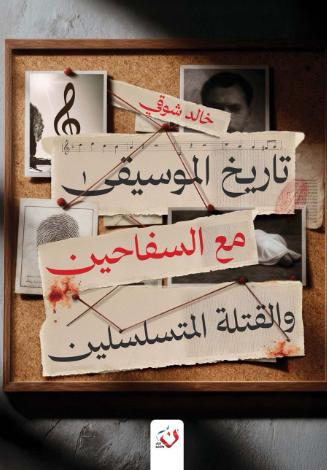 خالد شوقي
تاريخ الموسيقى
مع السفاحين
والقتلة المتسلسلين